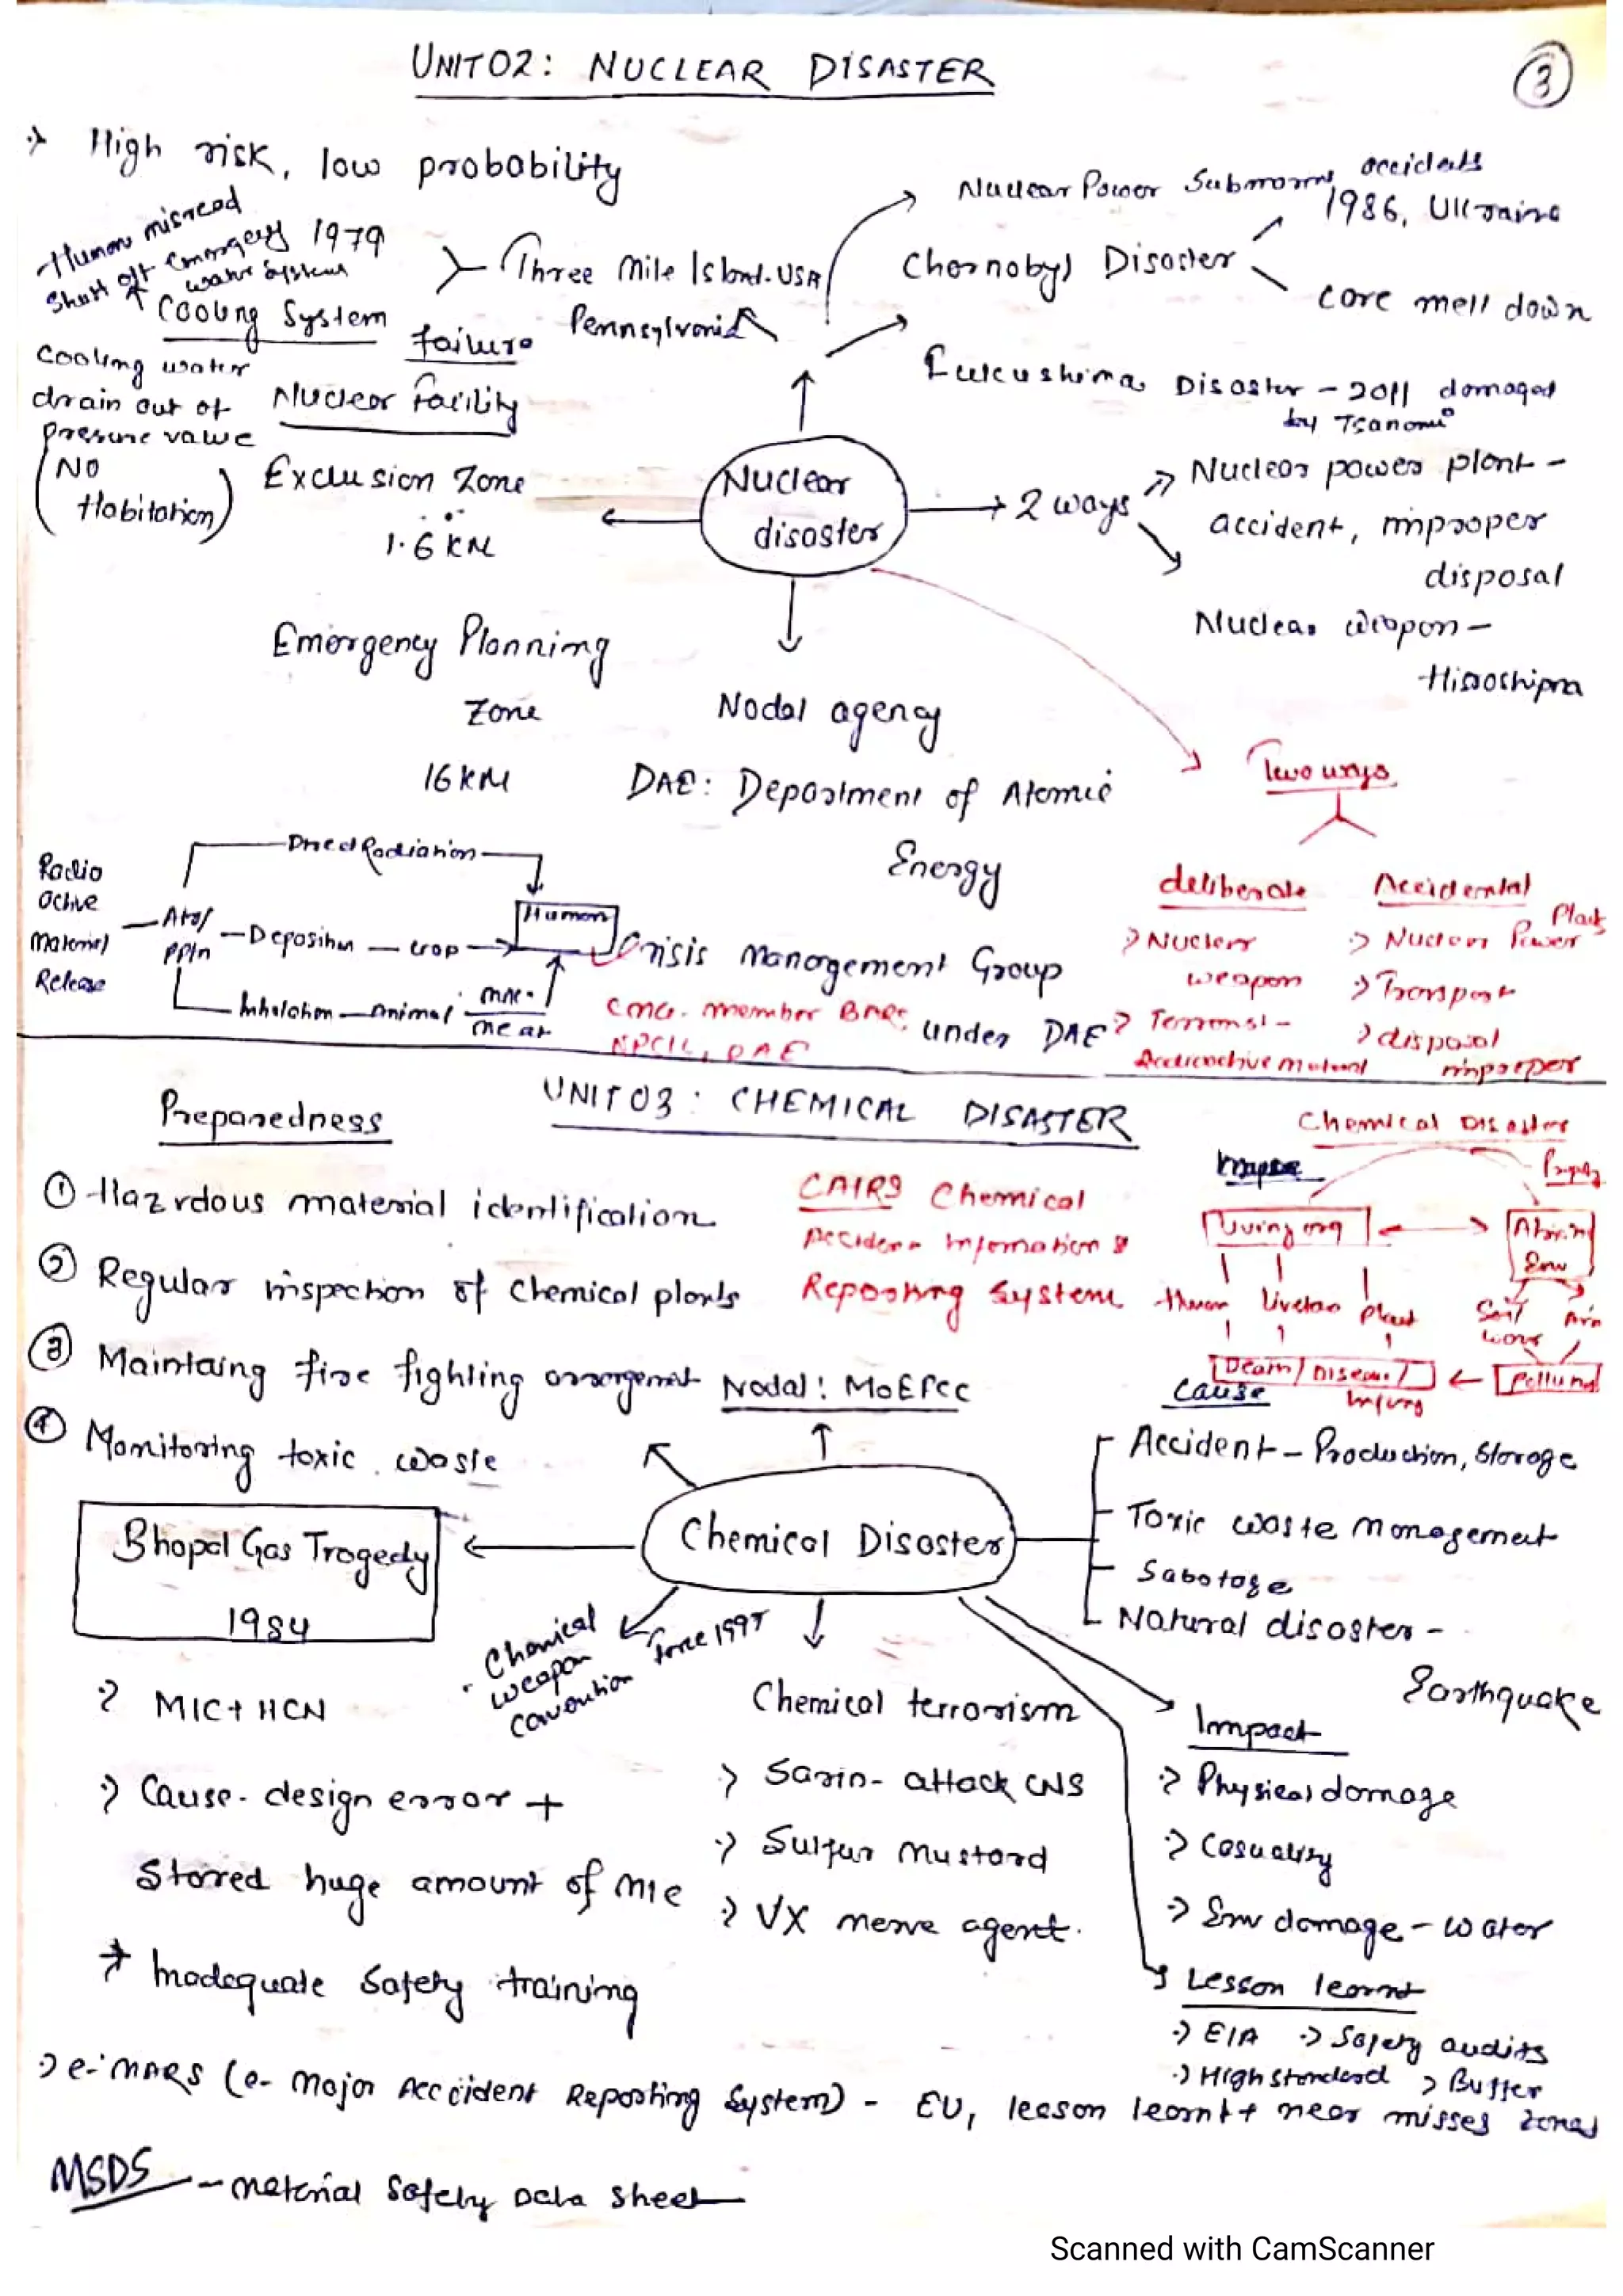 UNIT 02: NUCLEAR DISASTER
3
High risk, low probability
Human misread
Shut off emergency
water system
1979
Cooling System
failure
Cooling water
drain out of
pressure valve
Nuclear Facility
Three Mile Island. USA
Pennsylvania
Nuclear Power Submarine accidents
Chernobyl Disaster
1986, Ukraine
core melt down
Fukushima Disaster - 2011 damaged
by Tsanomi
(No
Habitation)
Exclusion Zone
1.6 KM
Nuclear
disaster
2 ways
Nuclear power plant -
accident, improper
disposal
Nuclear weapon -
Hiroshima
Emergency Planning
Zone
16 KM
Nodal agency
DAE: Department of Atomic
Energy
Crisis Management Group
under DAE
CMG. member BARC
NPCIL, DAE
Two ways
deliberate
Nuclear
weapon
Terrorist -
Accidental
Nuclear Power Plant
Transport
disposal
improper
Radio
active
Material
Release
Direct Radiation
Deposition
crop
Human
Inhalation
Animal
meat
UNIT 03: CHEMICAL DISASTER
Preparedness
① Hazrdous material identification
② Regular inspection of chemical plants
③ Maintaing fire fighting arrangement
④ Monitoring toxic waste
CAIRS Chemical
Accident Information &
Reporting System
Nodal: MoEFCC
Chemical Disaster
Living org
Human
plant
Soil
Death/Disease/
Injury
Cause
Accident - Production, Storage
Toxic waste management
Sabotage
Natural disaster -
Earthquake
Chemical Disaster
Bhopal Gas Tragedy
1984
MIC + HCN
Cause - design error +
Stored huge amount of MIC
Inadequate Safety training
Chemical
weapon
convention
force 1997
Chemical terrorism
Sarin - attack CNS
Sulfur Mustard
VX nerve agent.
Impact
Physical damage
Casuality
Env damage - water
Lesson learnt
EIA
Safety audits
High standard
Buffer
zones
e-MARS (e- Major Accident Reporting System) - EU, lesson learnt + near misses
MSDS - Material Safety Data Sheet
Scanned with CamScanner